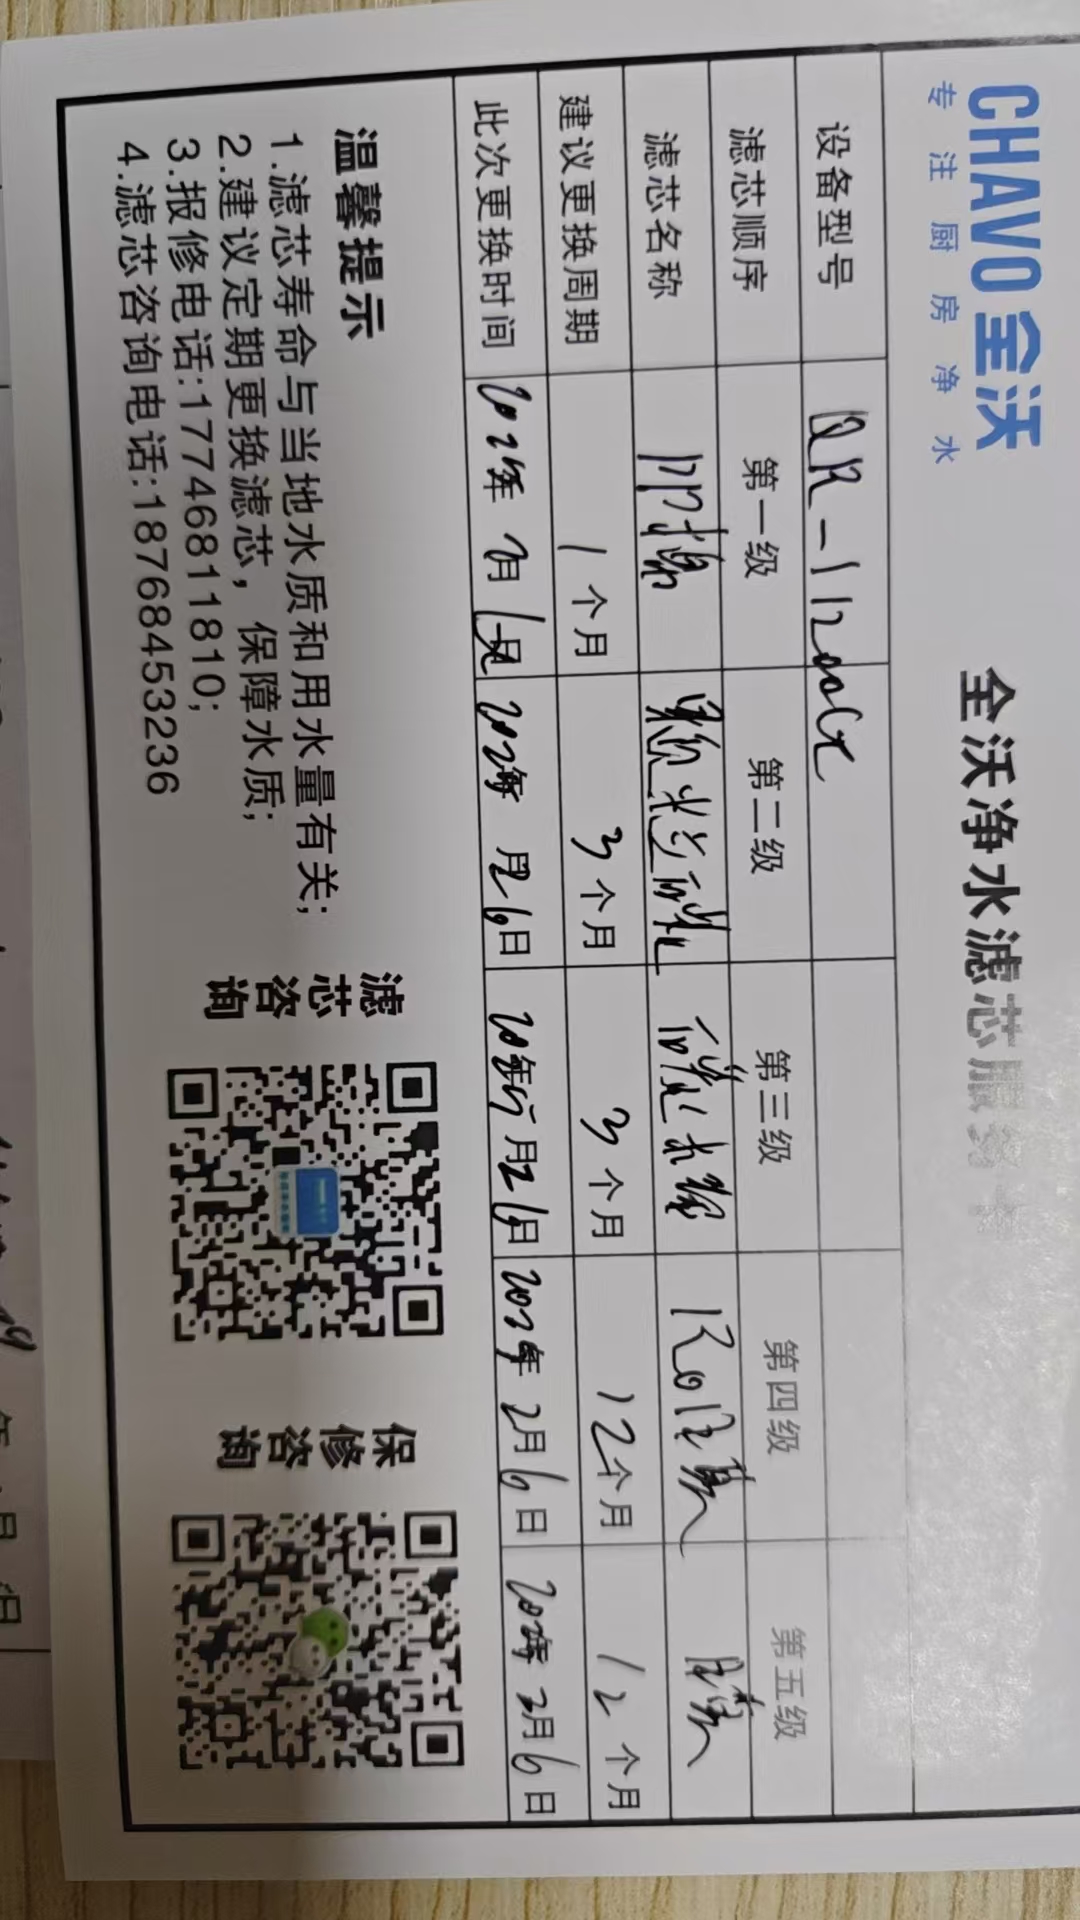 CHAVO 全沃
专注厨房净水
全沃净水滤芯服务卡
设备型号 QR-1120
滤芯顺序 第一级 第二级 第三级 第四级 第五级
滤芯名称 PP棉 颗粒
建议更换周期 1个月 3个月 3个月 12个月 12个月
此次更换时间 年 月 日 年 月26日 年 月26日 年2月6日 年2月6日
温馨提示
1.滤芯寿命与当地水质和用水量有关;
2.建议定期更换滤芯，保障水质;
3.报修电话:17746811810;
4.滤芯咨询电话:18768453236
滤芯咨询
保修咨询